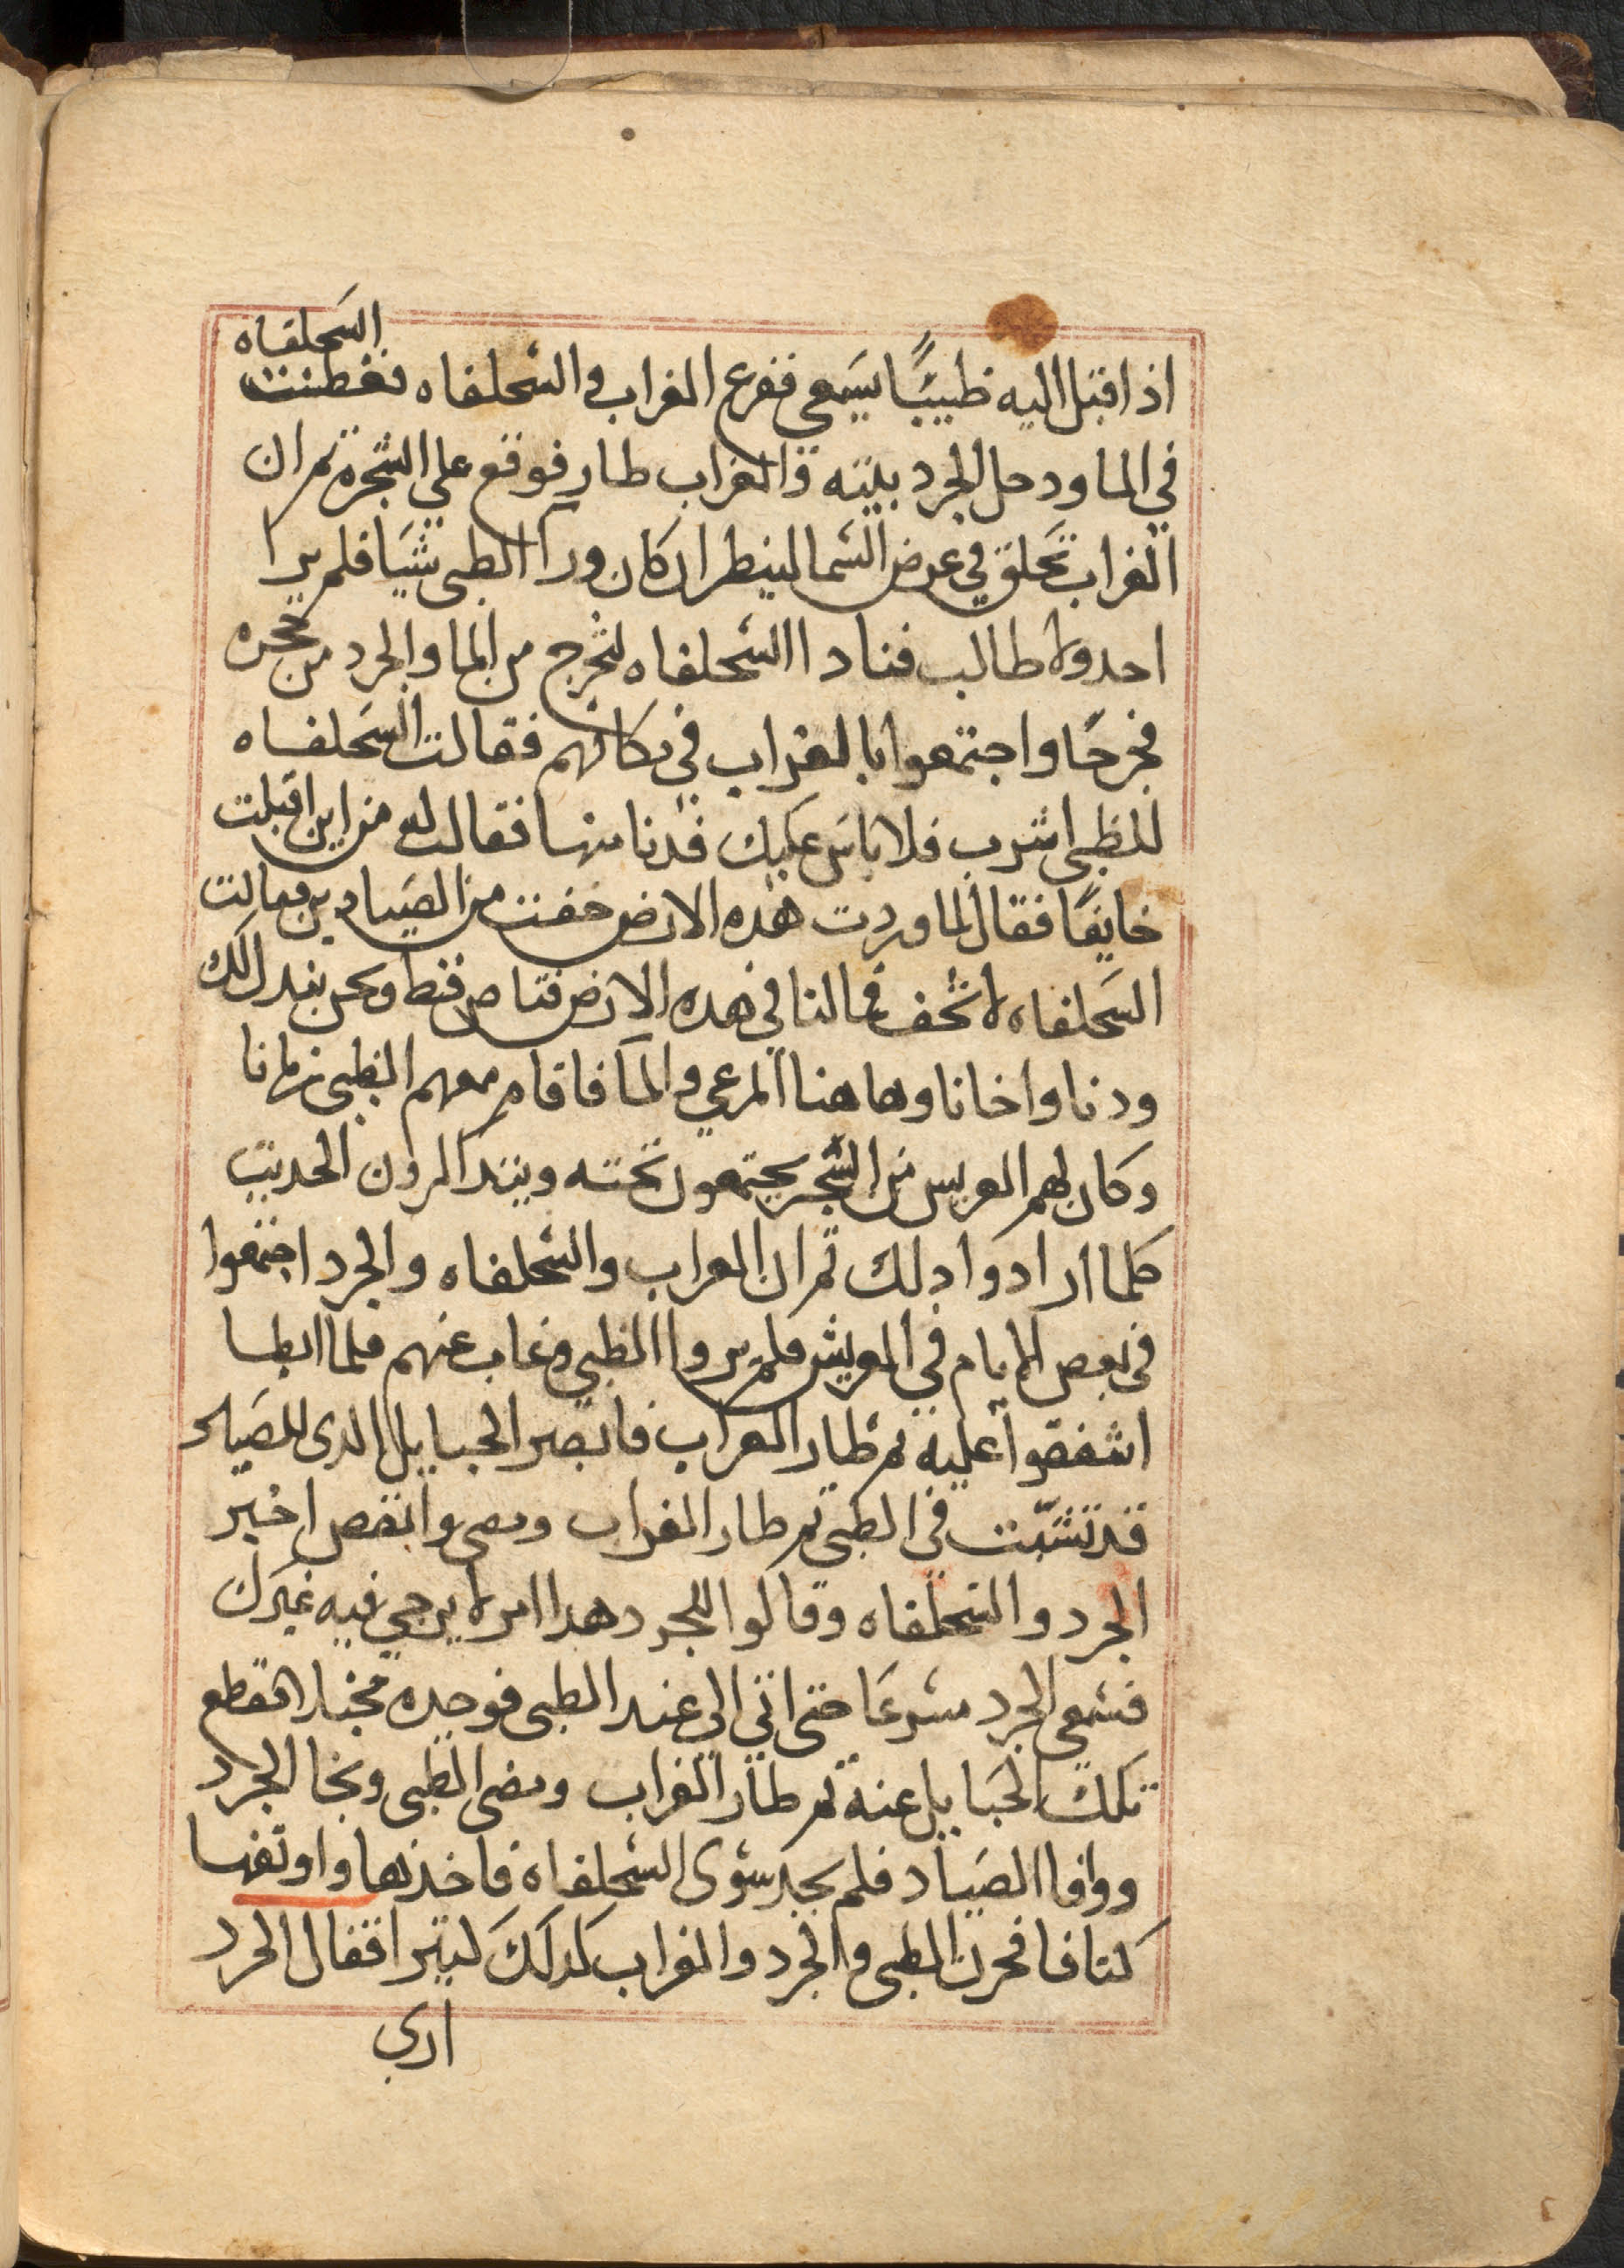 السَحلفاه
اذ اقبل اليه ظبيًا يسَعي ففزع الغراب والسحلفاه فغطست
في الما ودخل الجرد بيته والغراب طار فوقع علي الشجرة ثم ان
الغراب تحلق في عرض السما لينظر ان كان ورآ الظبي شيَا فلم يرا
احد ولا طالب فنادا السحلفاه لتخرج من الما والجرد من جحره
فخرجَا واجتمعوا بالغراب في مكانهم فقالت السَحلفاه
للظبي اشرب فلا باسَ عليك فدنا منها فقالت له من اين اقبلت
خايفًا فقال لما وردت هذه الارض خفت من الصَيادين فقالت
السَحلفاه لا تخف فما لنا في هذه الارض قناص قط ونحن نبدل لك
ودنا واخانا وها هنا المرعي والمآ فاقام معهم الظبي زمانا
وكان لهم العريس من الشجر يجتمعون تحته ويتذاكرون الحديث
كلما ارادوا ذلك ثم ان الغراب والسحلفاه والجرد اجتمعوا
في بعض الايام في العريش فلم يروا الظبي وغاب عنهم فلما ابطا
اشفقوا عليه ثم طار الغراب فابصر الحبايل الذي للصَياد
قد نشبّت في الظبي ثم طار الغراب ومضي وانقض اخبر
الجرد والسحلفاه وقالوا للجرد هذا امر لا يرجي فيه غيرك
فسَعي الجرد مسرعَا حتى اتي الي عند الظبي فوجده مخبل فقطع
تلك الحَبايل عنه ثم طار الغراب ومضى الظبي ونجا الجرد
ووافا الصَياد فلم يجد سوى السحلفاه فاخذها واوثقها
كتافا فحزن الظبي والجرد والغراب لذلك كتيرا فقال الجرد
اري